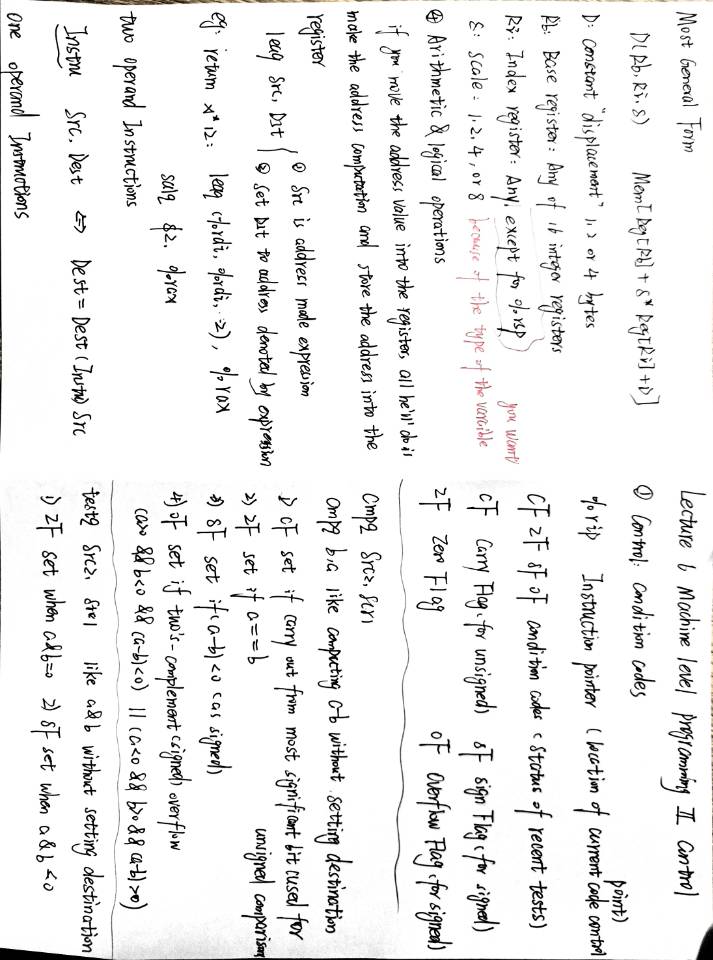 Most General Form
D(Rb, Ri, S) Mem[Reg[Rb] + S* Reg[Ri] + D]
D: Constant "displacement" 1, 2 or 4 bytes
Rb: Base register: Any of 16 integer registers
Ri: Index register: Any, except for %rsp
you want
S: Scale: 1, 2, 4, or 8 because of the type of the varcible
④ Arithmetic & logical operations
if you move the address value into the register, all he'll do is
make the address computation and store the address into the
register
leaq Src, Dst
① Src is address mode expression
② Set Dst to address denoted by expression
eg: return x*12: leaq (%rdi, %rdi, 2), %rax
salq $2, %rax
two operand Instructions
Instru Src, Dest ⇔ Dest = Dest (Instru) Src
one operand Instructions
Lecture 6 Machine level programming II Control
① Control: Condition codes
point)
%rip Instruction pointer (location of current code control
CF ZF SF OF condition codes (Status of recent tests)
CF Carry Flag (for unsigned) SF sign Flag (for signed)
ZF Zero Flag OF Overflow Flag (for signed)
Cmpq Src2, Scr1
Cmpq b,a like computing a-b without setting destination
1) CF set if carry out from most significant bit (used for
unsigned comparison
2) ZF set if a==b
3) SF set if (a-b)<0 (as signed)
4) OF set if two's-complement (signed) overflow
(a>0 && b<0 && (a-b)<0) || (a<0 && b>0 && (a-b)>0)
testq Src2, Src1 like a&b without setting destination
1) ZF set when a&b=0 2) SF set when a&b<0